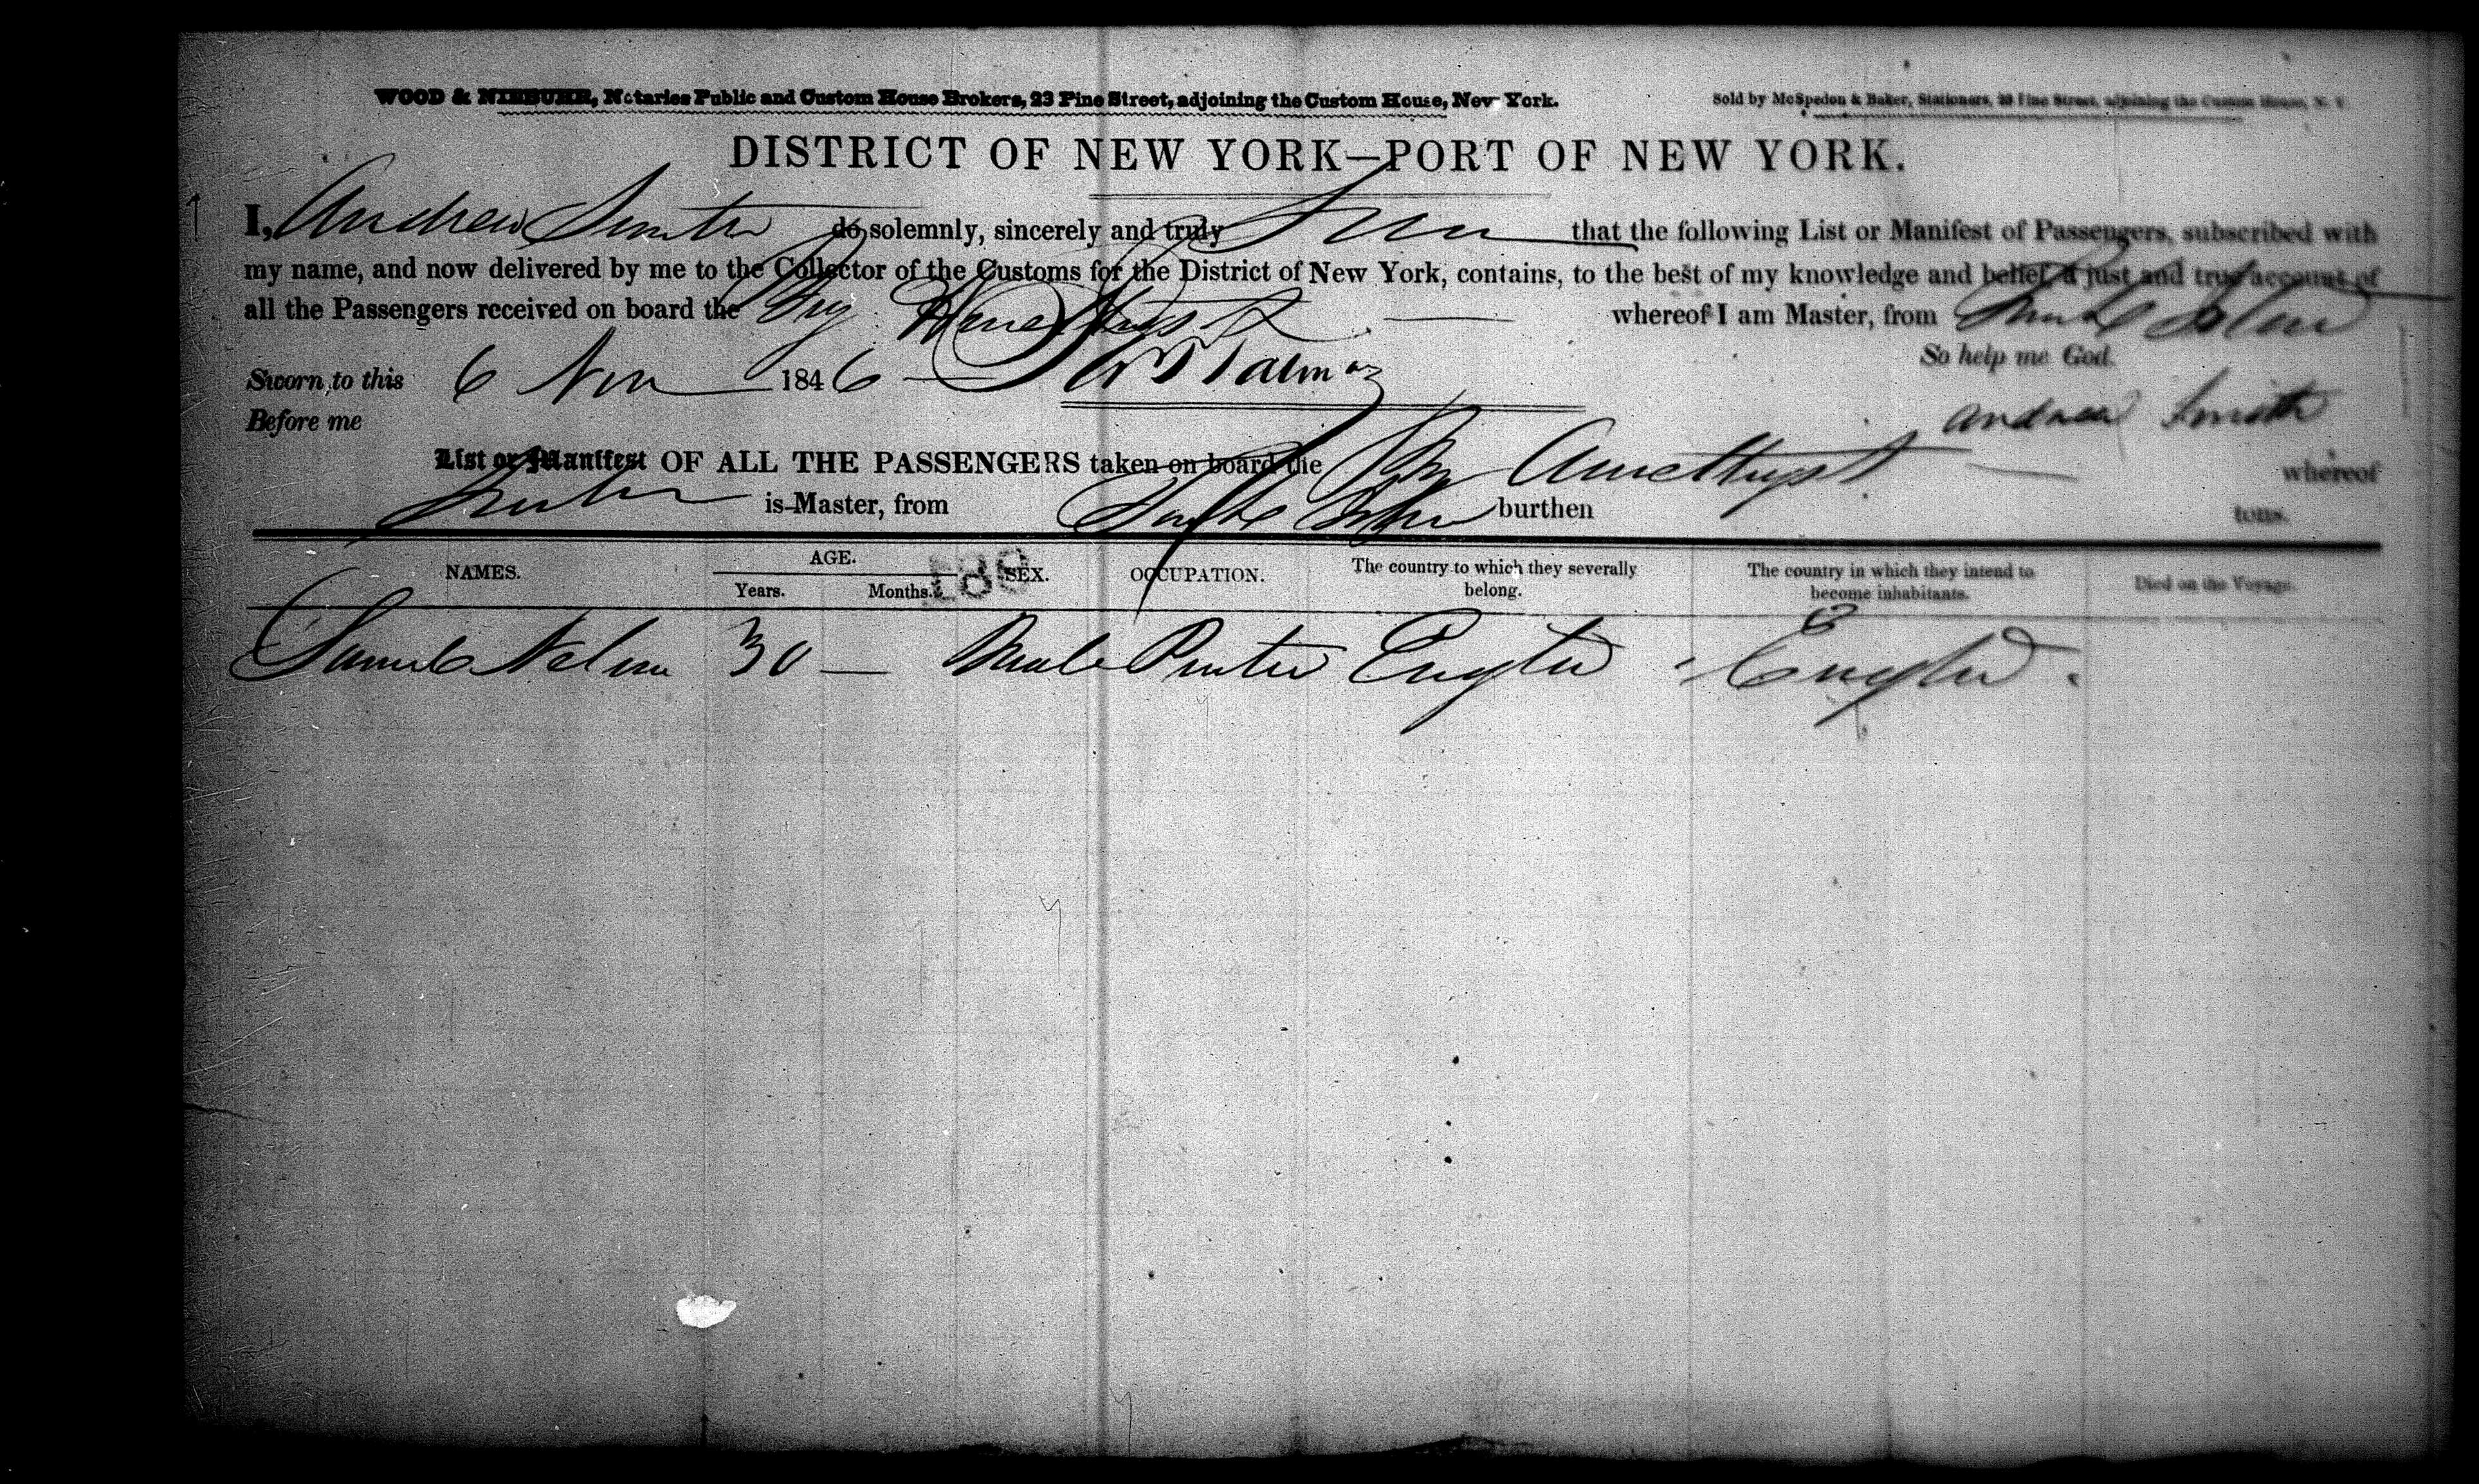 WOOD & NIEBUHR, Notaries Public and Custom House Brokers, 23 Pine Street, adjoining the Custom House, New York.
Sold by McSpedon & Baker, Stationers, 23 Pine Street, adjoining the Custom House, N. Y.
DISTRICT OF NEW YORK—PORT OF NEW YORK.
I, Andrew Smith do solemnly, sincerely and truly that the following List or Manifest of Passengers, subscribed with
my name, and now delivered by me to the Collector of the Customs for the District of New York, contains, to the best of my knowledge and belief, a just and true account of
all the Passengers received on board the Brig Amethyst whereof I am Master, from
So help me God.
Sworn to this 6 Nov 1846
Before me
Andrew Smith
List or Manifest OF ALL THE PASSENGERS taken on board the Brig Amethyst whereof
Smith is Master, from burthen tons.
NAMES. AGE. SEX. OCCUPATION. The country to which they severally belong. The country in which they intend to become inhabitants. Died on the Voyage.
Years. Months.
Samuel Nelson 30 — Male England England